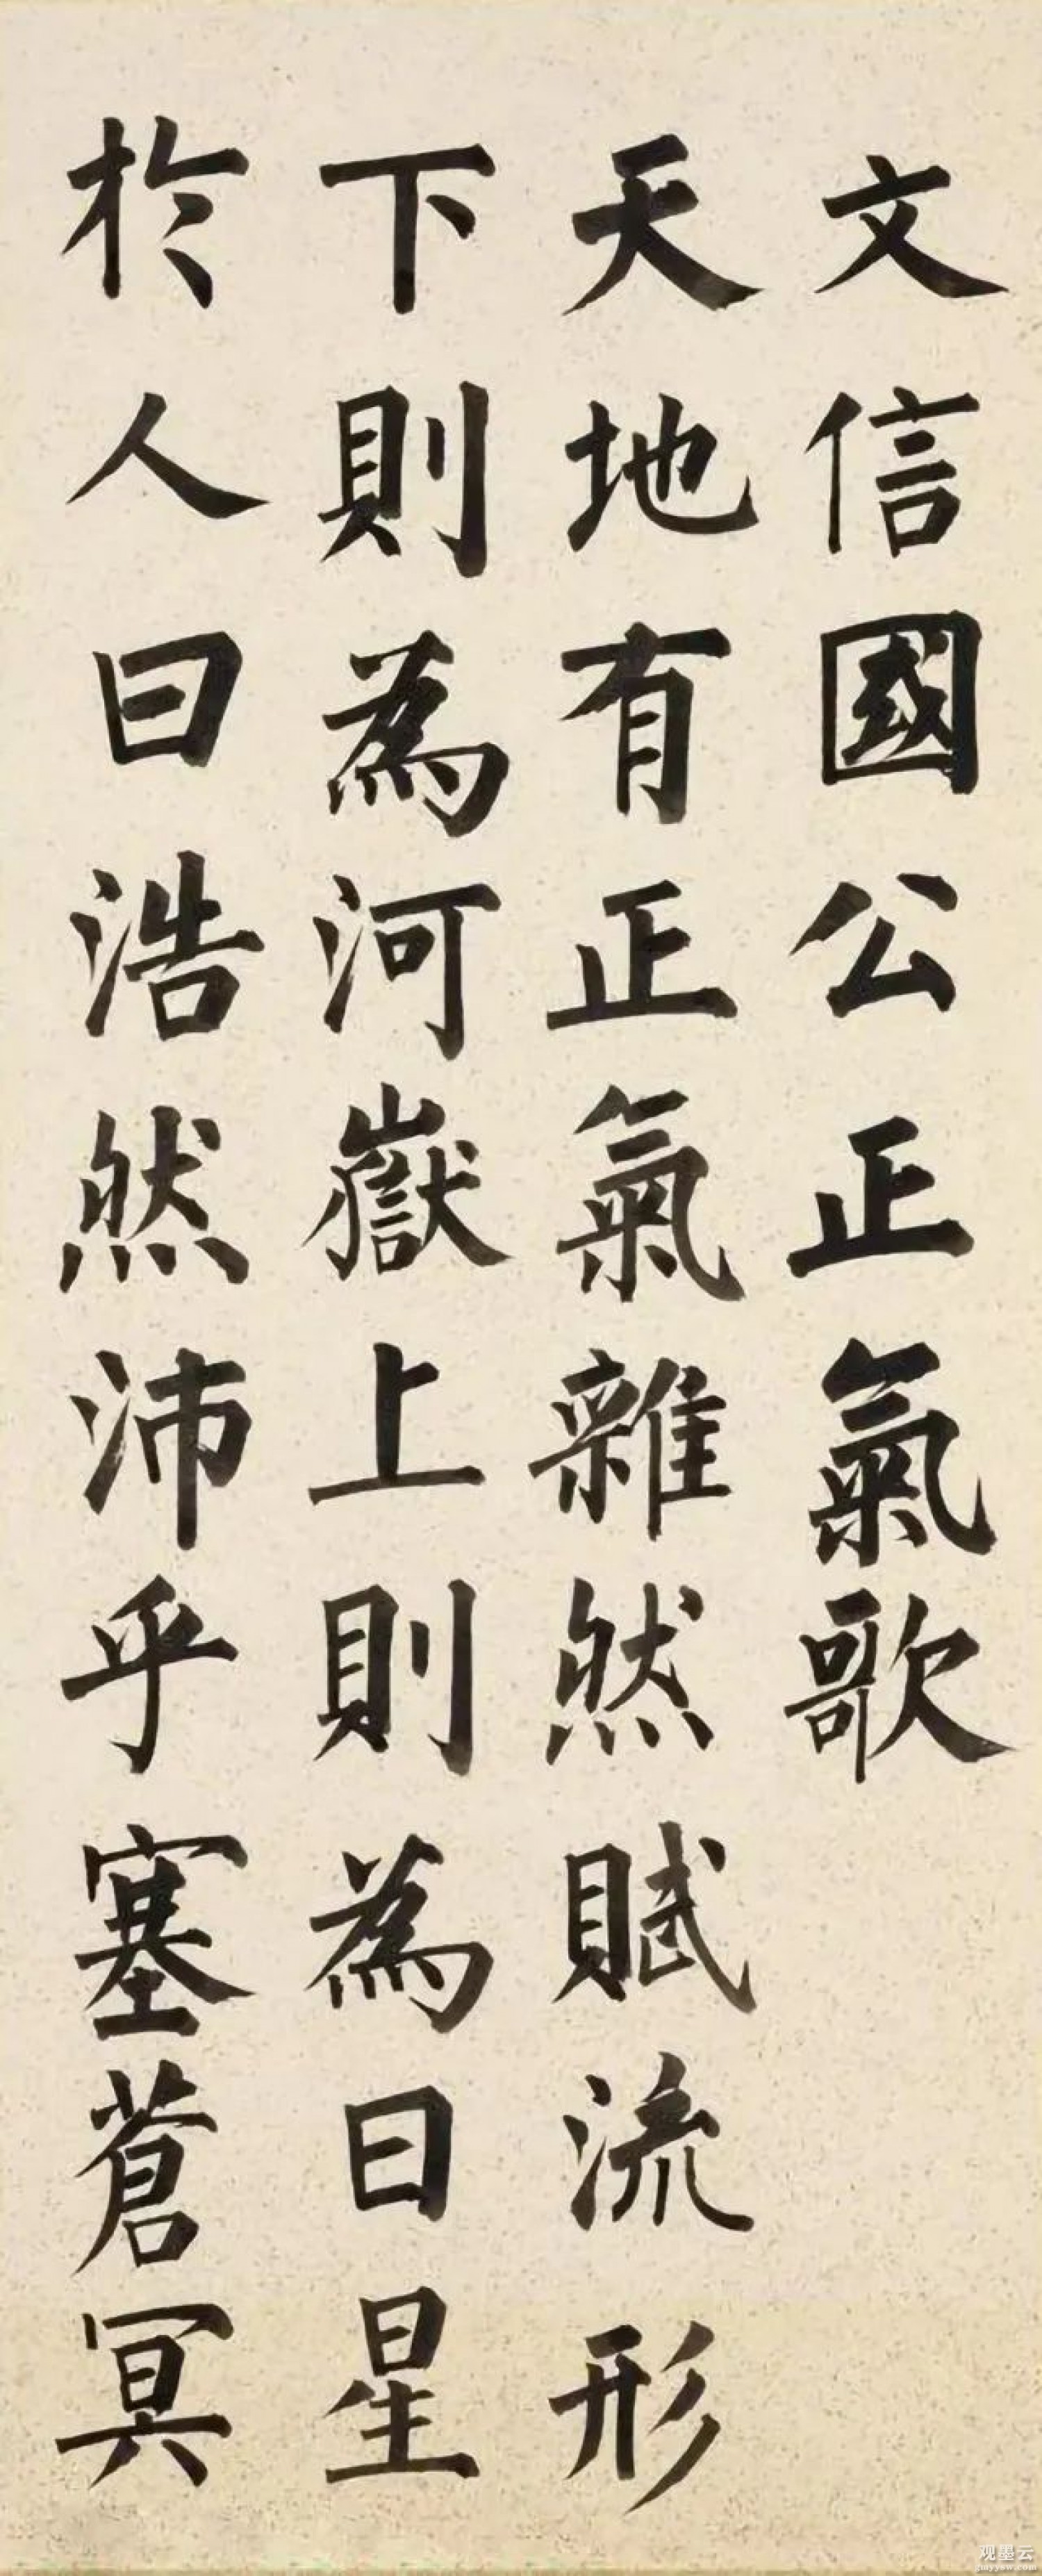 文信國公正氣歌
天地有正氣雜然賦流形
下則為河嶽上則為日星
於人曰浩然沛乎塞蒼冥
观墨云